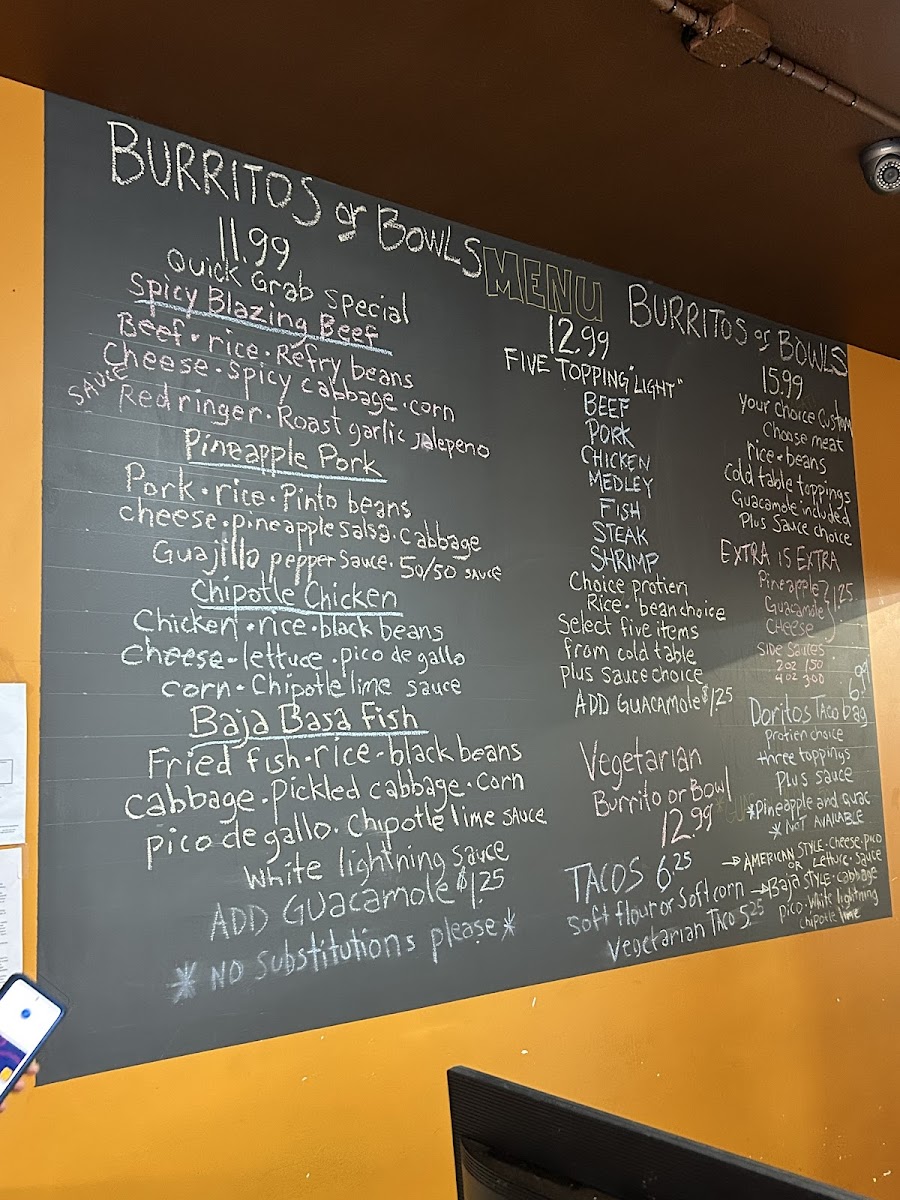 BURRITOS or BOWLS
11.99
Quick Grab Special
Spicy Blazing Beef
Beef • rice • Refry beans
Cheese • spicy cabbage • corn
SAUCE
Red ringer • Roast garlic jalepeno
Pineapple Pork
Pork • rice • Pinto beans
cheese • pineapple salsa • cabbage
Guajillo pepper sauce • 50/50 sauce
Chipotle Chicken
Chicken • rice • black beans
cheese • lettuce • pico de gallo
corn • Chipotle lime sauce
Baja Basa Fish
Fried fish • rice • black beans
cabbage • pickled cabbage • corn
pico de gallo • Chipotle lime sauce
white lightning sauce
ADD Guacamole $1.25
* NO Substitutions please *
MENU
12.99
FIVE TOPPING "LIGHT"
BEEF
PORK
CHICKEN
MEDLEY
FISH
STEAK
SHRIMP
Choice protien
Rice • bean choice
Select five items
from cold table
plus sauce choice
ADD Guacamole $1.25
Vegetarian
Burrito or Bowl
12.99
TACOS 6.25
soft flour or soft corn
Vegetarian Taco 5.25
BURRITOS or BOWLS
15.99
your choice Custom
Choose meat
rice • beans
cold table toppings
Guacamole included
Plus Sauce choice
EXTRA IS EXTRA
Pineapple
Guacamole } 1.25
CHEESE
SIDE SAUCES
2oz 1.50
4oz 3.00
6.99
Doritos Taco bag
Protien choice
three toppings
Plus sauce
*Pineapple and Guac
* NOT AVAILABLE
→ AMERICAN STYLE • Cheese • Pico
OR Lettuce • Sauce
→ Baja STYLE • Cabbage
Pico • White lightning
chipotle lime